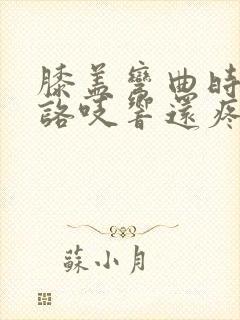 膝盖彎曲時
詻吱響還疼
蘇小月